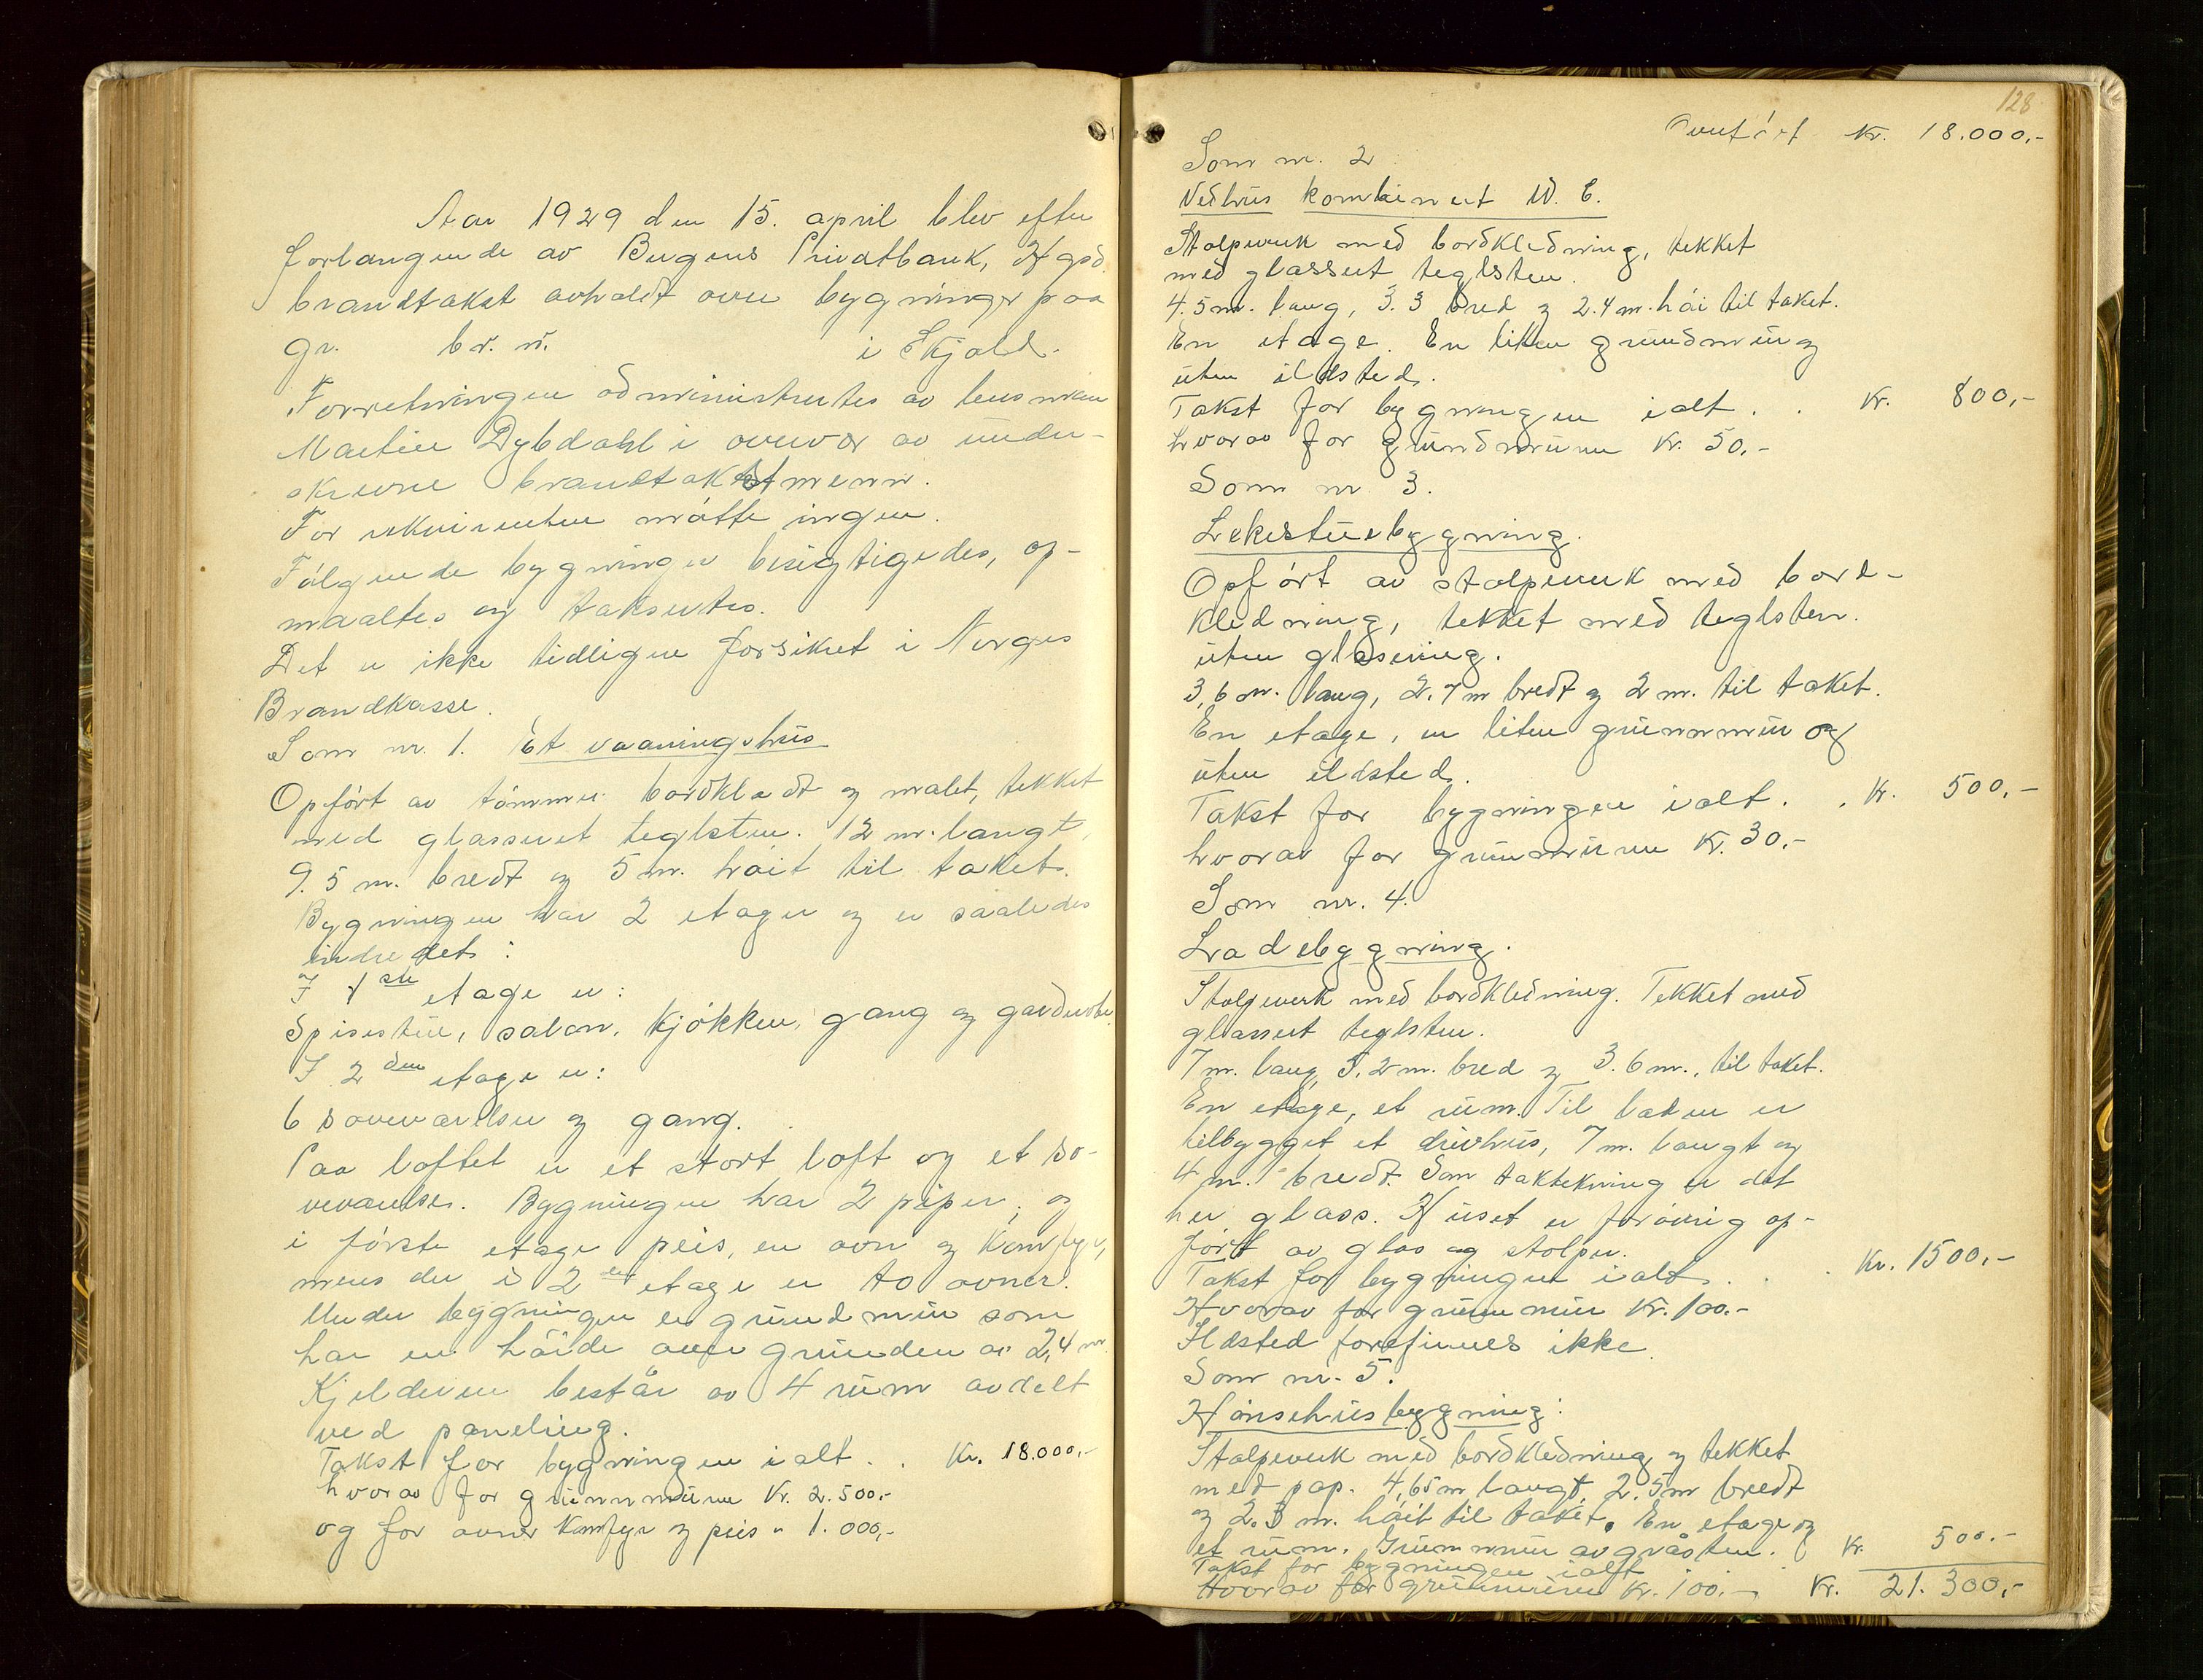 Aar 1929 den 15. april blev efter
forlangende av Bergens Privatbank, Hgsd.
brandtakst avholdt over bygninger paa
gr. br. nr. i Skjold.
Forretningen administrertes av lensman
Martin Dybdahl i overvær av under-
skrevne brandtakstmenn.
For rekvirenten møtte ingen.
Følgende bygninger besigtigedes, op-
maaltes og taksertes.
Det er ikke tidligere forsikret i Norges
Brandkasse.
Som nr. 1. Et vaaningshus
Opført av tømmer bordklædt og malet, tekket
med glassert teglsten. 12 m. langt,
9.5 m. bredt og 5 m. høit til taket.
Bygningen har 2 etager og er saaledes
indredet:
I 1ste etage er:
Spisestue, salon, kjøkken, gang og garderobe.
I 2den etage er:
6 soveværelser og gang.
Paa loftet er et stort loft og et so-
veværelse. Bygningen har 2 piper, og
i første etage peis, en ovn og komfyr,
mens der i 2den etage er to ovner.
Under bygningen er grundmur som
har en høide over grunden av 2,4 m.
Kjelderen består av 4 rum avdelt
ved paneling.
Takst for bygningen ialt . . Kr. 18.000,-
hvorav for grunnmuren Kr. 2.500,-
og for ovner komfyr og peis " 1.000,-
128
Overført Kr. 18.000,-
Som nr. 2
Vedhus kombinert W. C.
Stolpeverk med bordkledning, tekket
med glassert teglsten.
4.5 m. lang, 3.3 bred og 2.4 m. høi til taket.
En etage. En liten grundmur og
uten ildsted.
Takst for bygningen ialt . . Kr. 800,-
hvorav for grundmuren Kr. 50,-
Som nr 3.
Lekestuebygning.
Opført av stolpeverk med bord-
kledning, tekket med teglsten.
uten glasering.
3,6 m. lang, 2.7 m bredt og 2 m. til taket.
En etage, en liten grunnmur og
uten ildsted.
Takst for bygningen ialt . . Kr. 500,-
hvorav for grunnmuren Kr. 30,-
Som nr. 4.
Ladebygning.
Stolpeverk med bordkledning. Tekket med
glassert teglsten.
7 m. lang, 5.2 m. bred og 3.6 m., til taket.
En etage, et rum. Til laden er
tilbygget et drivhus, 7 m. langt og
4 m. bredt. Som taktekning er det
her glass. Huset er forøvrig op-
ført av glas og stolper.
Takst for bygningen ialt . . . Kr. 1500,-
Hvorav for grunnmur Kr. 100.-
Ildsted forefinnes ikke.
Som nr. 5.
Hønsehusbygning:
Stolpeverk med bordkledning og tekket
med pap. 4,65 m langt, 2.5 m bredt
og 2.3 m. høit til taket. En etage og
et rum. Grunnmur av gråsten.
Takst for bygningen ialt Kr. 500.-
Hvorav for grunnmuren Kr. 100.- Kr. 21.300,-